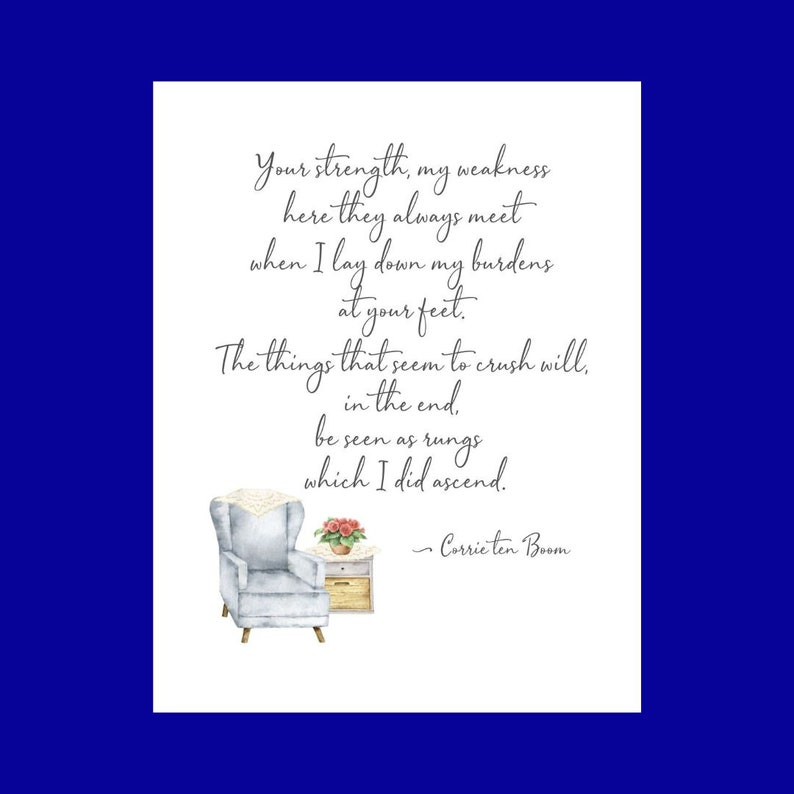 Your strength, my weakness
here they always meet
when I lay down my burdens
at your feet.
The things that seem to crush will,
in the end,
be seen as rungs
which I did ascend.
~ Corrie ten Boom